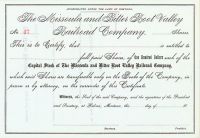 INCORPORATED UNDER THE LAWS OF MONTANA
The Missoula and Bitter Root Valley
Railroad Company.
No. 47 Shares
This is to Certify, that is entitled to
full paid Shares, of One Hundred Dollars each of the
Capital Stock of The Missoula and Bitter Root Valley Railroad Company,
which said Shares are transferable only on the Books of the Company, in
person or by Attorney, on the surrender of this Certificate.
Witness, the Seal of the said Company, and the signatures of the President
and Secretary, at Helena, Montana, this day of